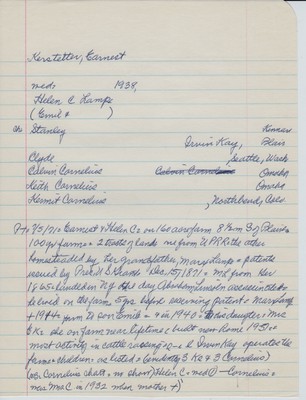 Kerstetter, Earnest
md. 1938,
Helen C Lampe
(Emil & )
Ch: Stanley Kennar
Irvin Kay, Blair
Clyde , Seattle, Wash
Calvin Cornelius Calvin Cornelius Omaha,
Keith Cornelius Omaha
Kermit Cornelius , North bend, Nebr
7/3/71 Earnest & Helen C on 160 acre farm
100 yr farm = 2 tracts of land from UPRR the other
homesteaded by her grandfather, Marx Lampe = patents
issued by Pres U S Grant Dec 15, 1871 = Md from Ger
1865 = landed in NY the day Abraham Lincoln assassinated =
lived on the farm 5 yrs before receiving patent = Marx Lamp
+ 1944 farm to son Emil = + in 1940 to his daughter = Mrs
E K = she on farm near lifetime = built new home 1950 =
most activity in cattle raising = Irwin Kay operates the
farm = children as listed =
Cornelius
was Mrs C in 1932 when mother +)